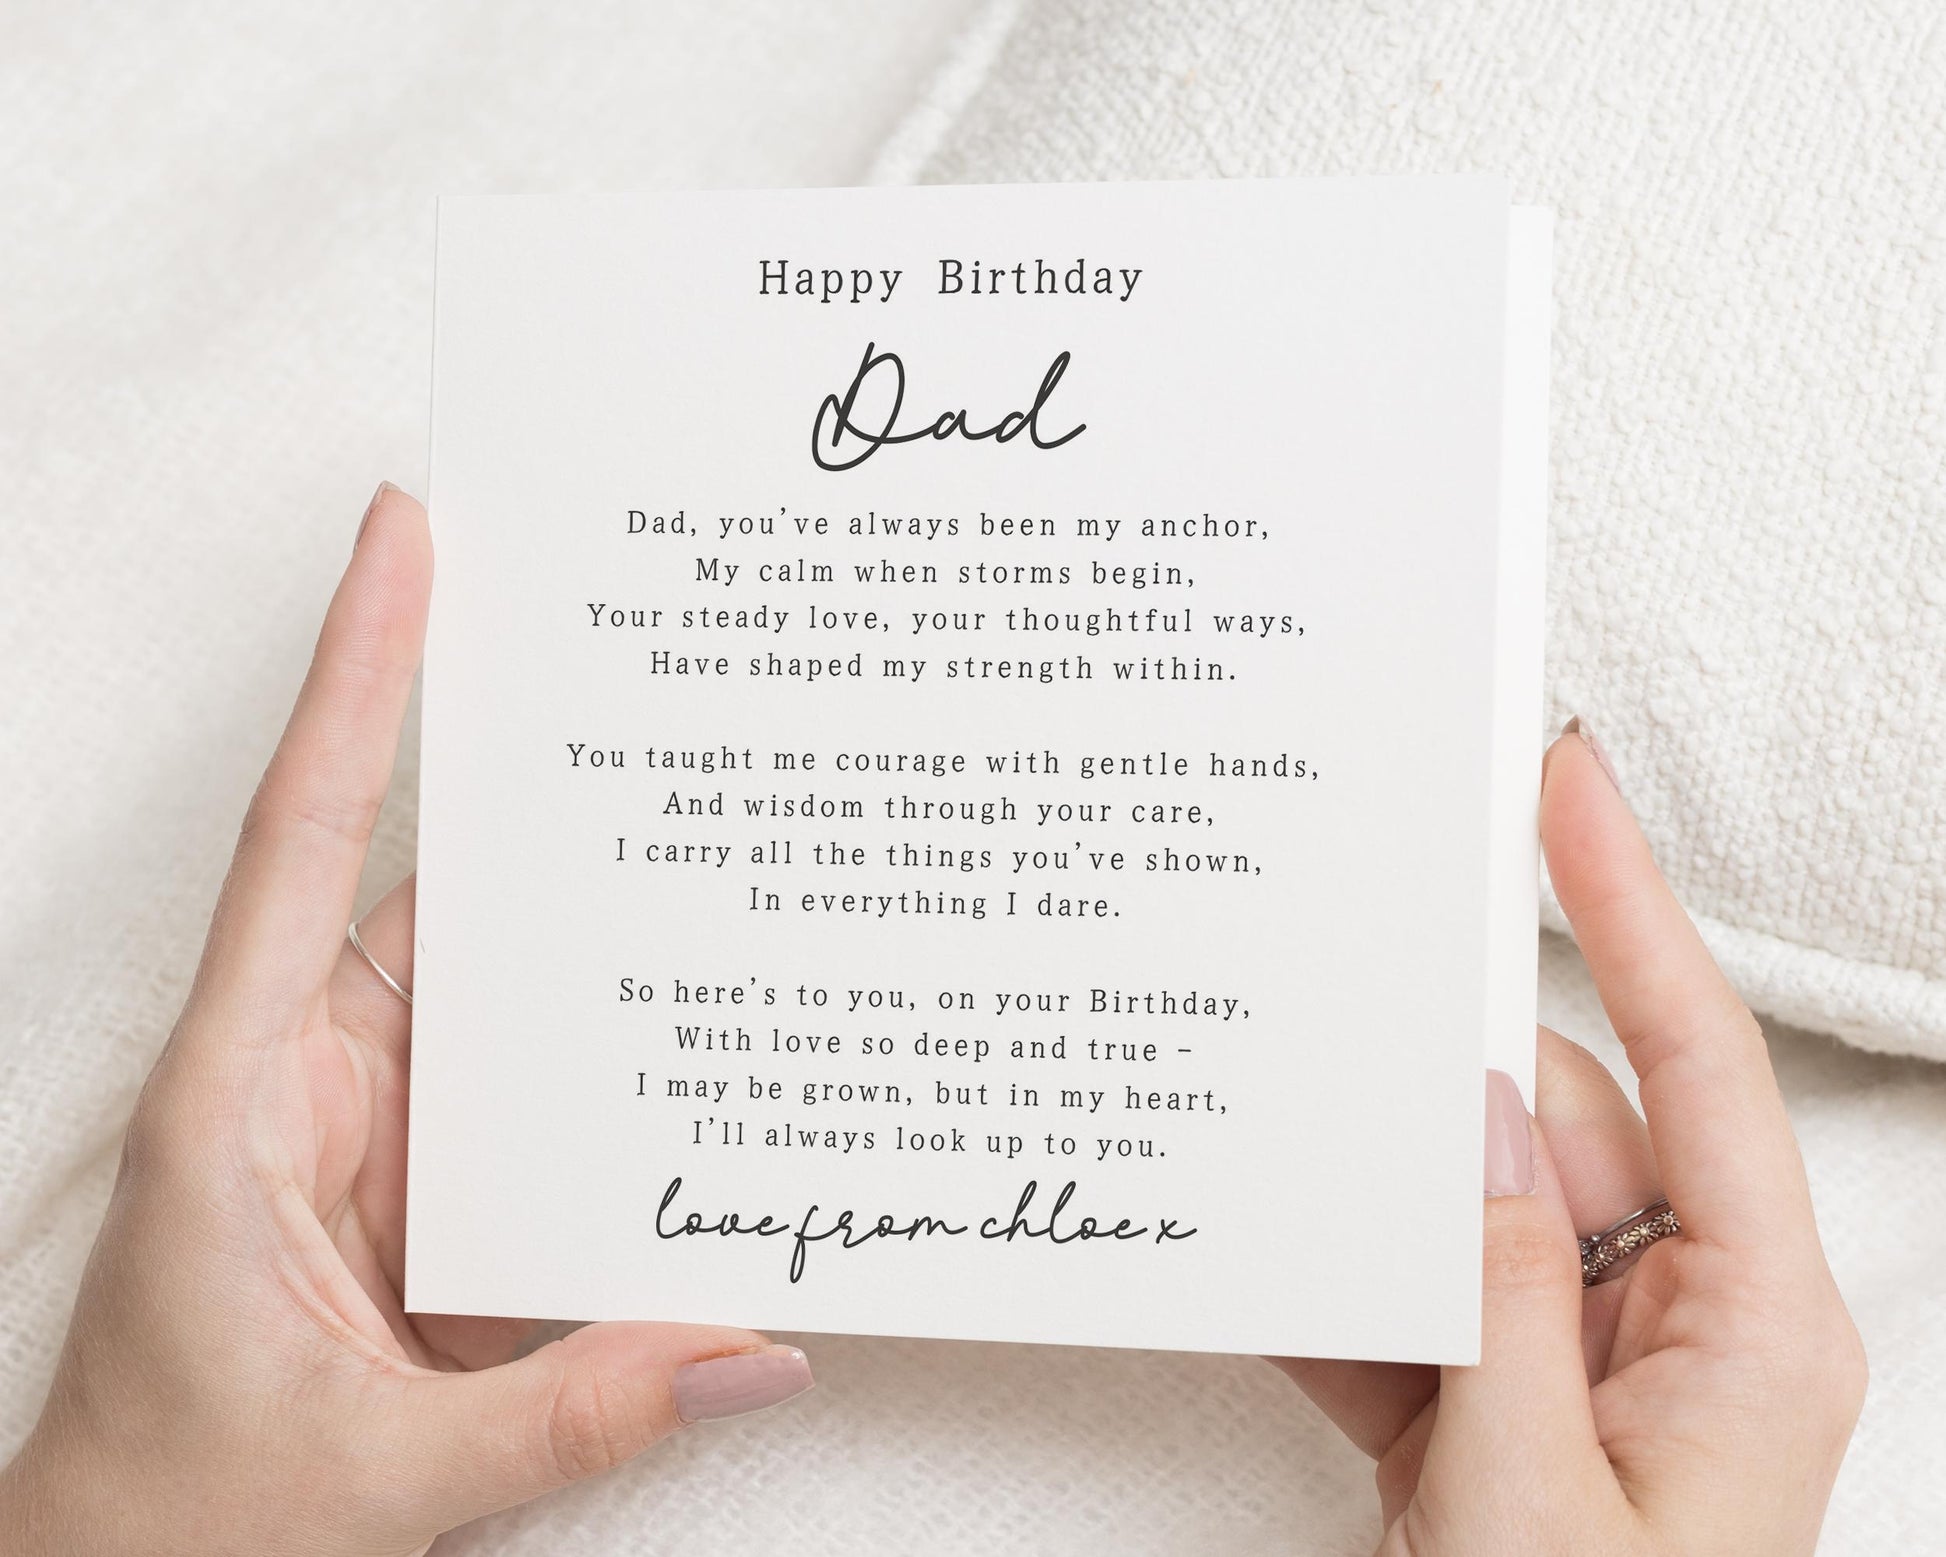 Happy Birthday
Dad
Dad, you've always been my anchor,
My calm when storms begin,
Your steady love, your thoughtful ways,
Have shaped my strength within.
You taught me courage with gentle hands,
And wisdom through your care,
I carry all the things you've shown,
In everything I dare.
So here's to you, on your Birthday,
With love so deep and true –
I may be grown, but in my heart,
I'll always look up to you.
love from chloe x